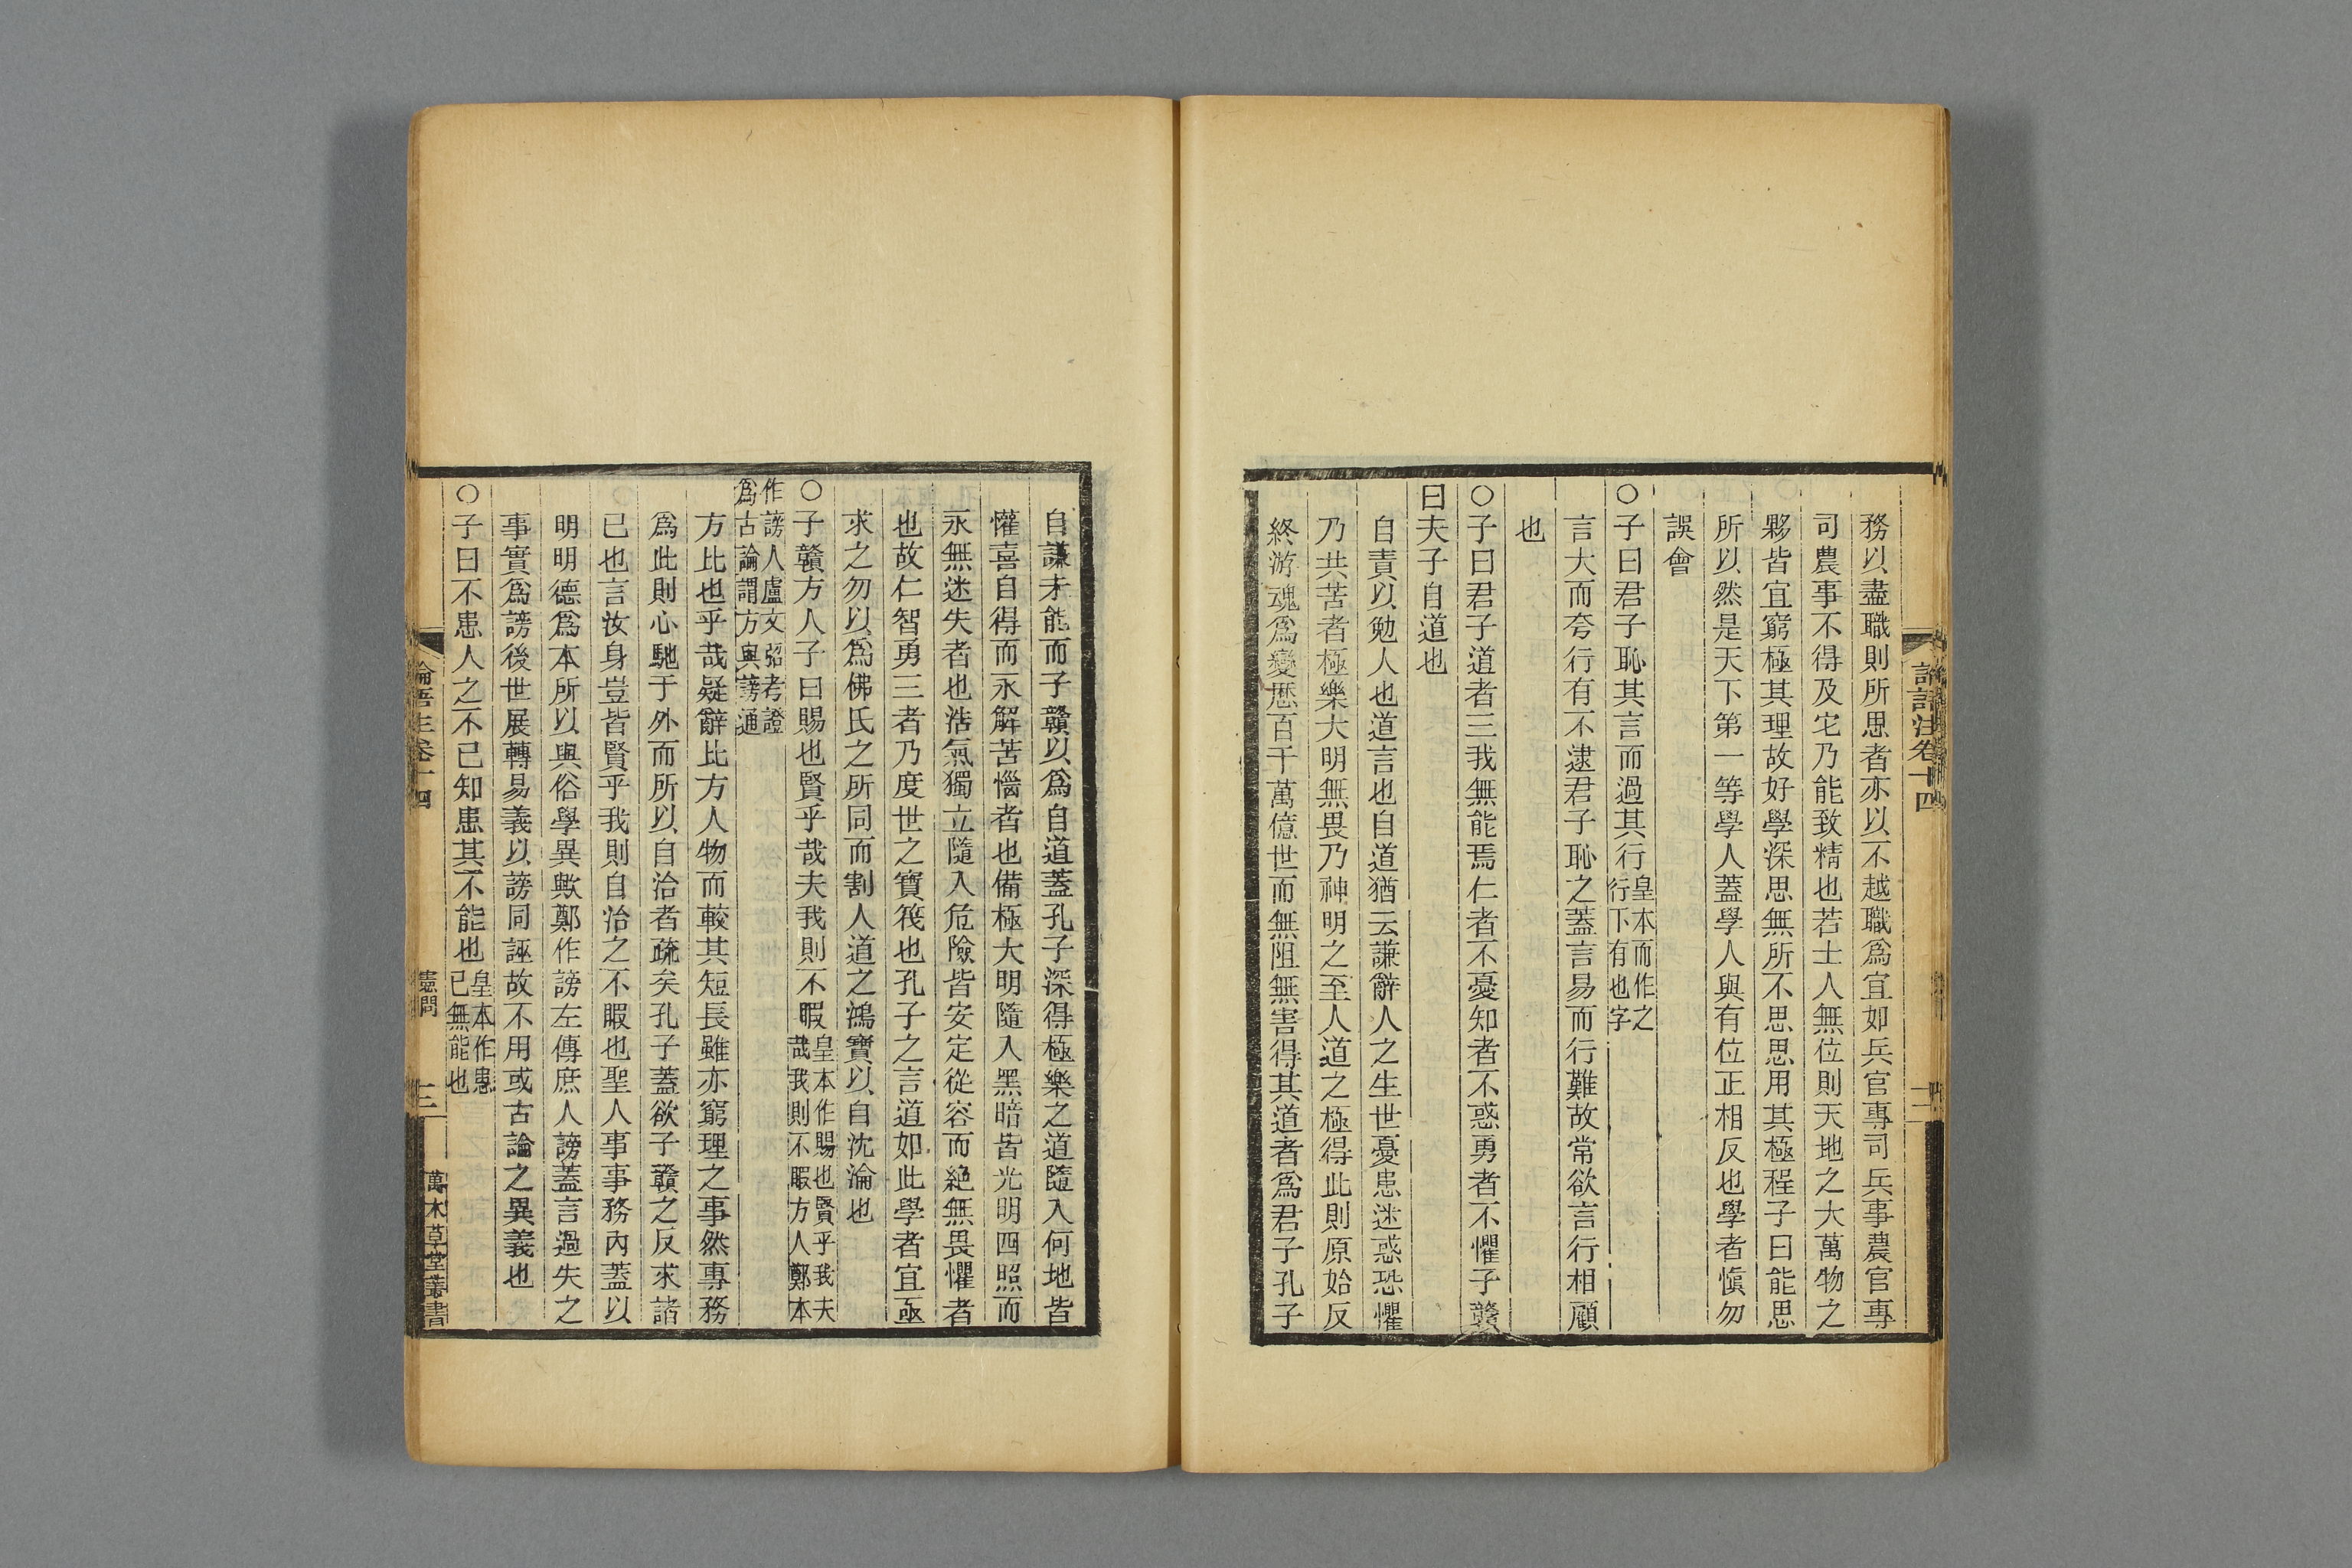 論語注卷十四
務以盡職則所思者亦以不越職爲宜如兵官專司兵事農官專
司農事不得及它乃能致精也若士人無位則天地之大萬物之
夥皆宜窮極其理故好學深思無所不思思用其極程子曰能思
所以然是天下第一等學人蓋學人與有位正相反也學者愼勿
誤會
○子曰君子恥其言而過其行皇本而作之行下有也字
言大而夸行有不逮君子恥之蓋言易而行難故常欲言行相顧
也
○子曰君子道者三我無能焉仁者不憂知者不惑勇者不懼子贛
曰夫子自道也
自責以勉人也道言也自道猶云謙辭人之生世憂患迷惑恐懼
乃共苦者極樂大明無畏乃神明之至人道之極得此則原始反
終游魂爲變歷百千萬億世而無阻無害得其道者爲君子孔子
自謙未能而子贛以爲自道蓋孔子深得極樂之道隨入何地皆
懽喜自得而永解苦惱者也備極大明隨入黑暗皆光明四照而
永無迷失者也浩氣獨立隨入危險皆安定從容而絕無畏懼者
也故仁智勇三者乃度世之寶筏也孔子之言道如此學者宜亟
求之勿以爲佛氏之所同而割人道之鴻寶以自沈淪也
○子贛方人子曰賜也賢乎哉夫我則不暇皇本作賜也賢乎我夫哉我則不暇方人鄭本
作謗人盧文弨考證爲古論謂方與謗通
方比也乎哉疑辭比方人物而較其短長雖亦窮理之事然專務
爲此則心馳于外而所以自治者疏矣孔子蓋欲子贛之反求諸
己也言汝身豈皆賢乎我則自治之不暇也聖人事事務內蓋以
明明德爲本所以與俗學異歟鄭作謗左傳庶人謗蓋言過失之
事實爲謗後世展轉易義以謗同誣故不用或古論之異義也
○子曰不患人之不己知患其不能也皇本作患己無能也
論語注卷十四 憲問 三 萬木草堂叢書